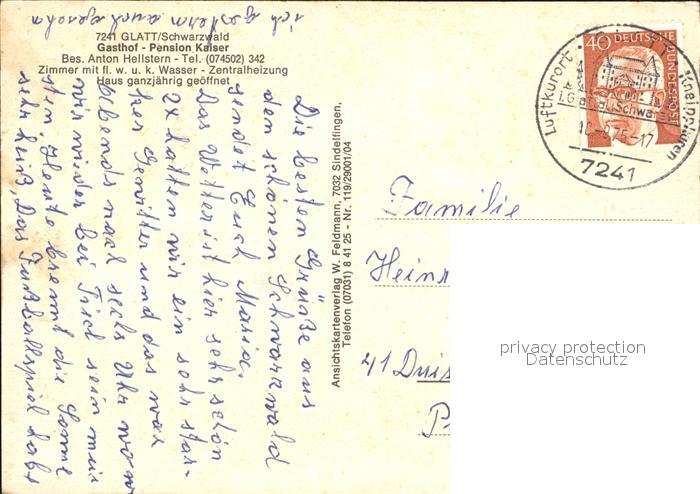 7241 GLATT/Schwarzwald
Gasthof - Pension Kaiser
Bes. Anton Hellstern - Tel. (074502) 342
Zimmer mit fl. w. u. k. Wasser - Zentralheizung
Haus ganzjährig geöffnet
Die besten Grüße aus
den schönen Schwarzwald
sendet Euch Maria.
Das Wetter ist hier sehr schön
2x hatten wir ein sehr star-
ken Gewitter und das war
Abends nach sechs Uhr wo
wir wider bei Tisch sein mus
sten. Heute brennt die Sonne
sehr heiß. Das Fußballspiel habe
ich gestern auch gesehn
Ansichtskartenverlag W. Feldmann, 7032 Sindelfingen,
Telefon (07031) 8 41 25 - Nr. 119/29001/04
40 DEUTSCHE
BUNDESPOST
Luftkurort
Kneippkuren
7241
Familie
Hein
41 Duis
privacy protection
Datenschutz